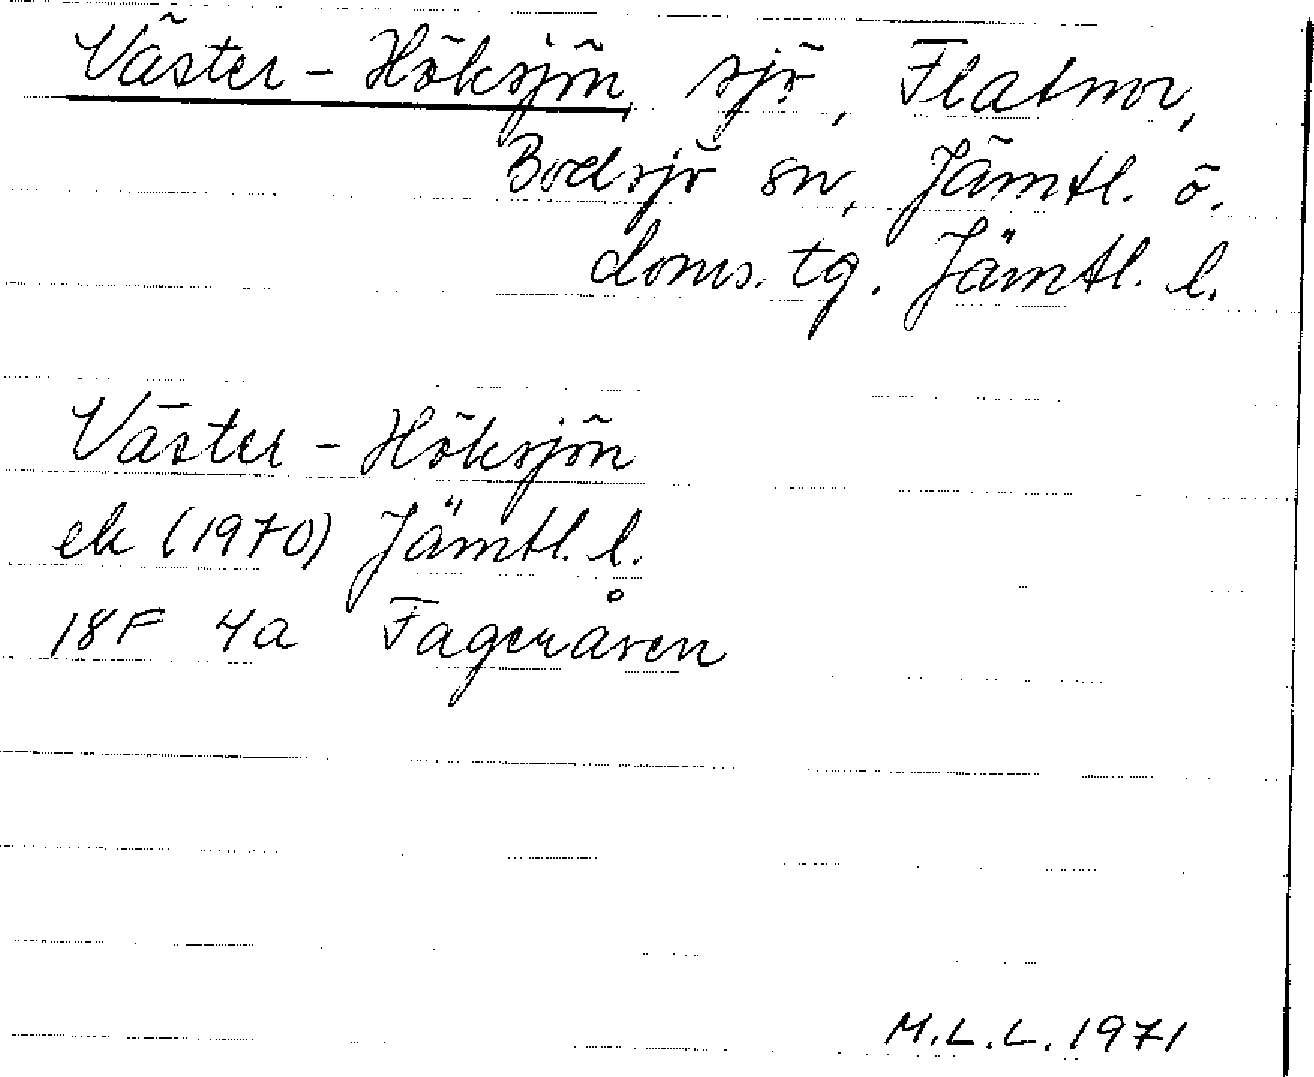 Väster-Höksjön, sjö, Flatnor,
Bodsjö sn, Jämtl. ö.
doms. tg. Jämtl. l.
Väster-Höksjön
ek (1970) Jämtl. l.
18F 4a Fageråsen
M.L.L. 1971